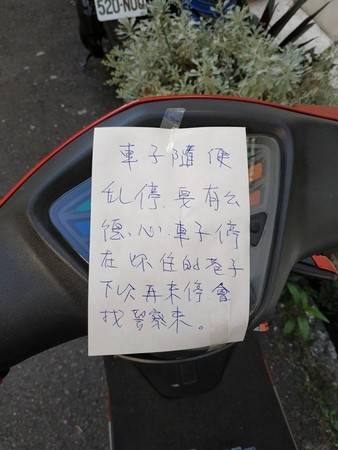 52U-NUQ
車子隨便
乱停.要有公
德.心.車子停
在妳住的巷子
下次再來停會
找警察來。